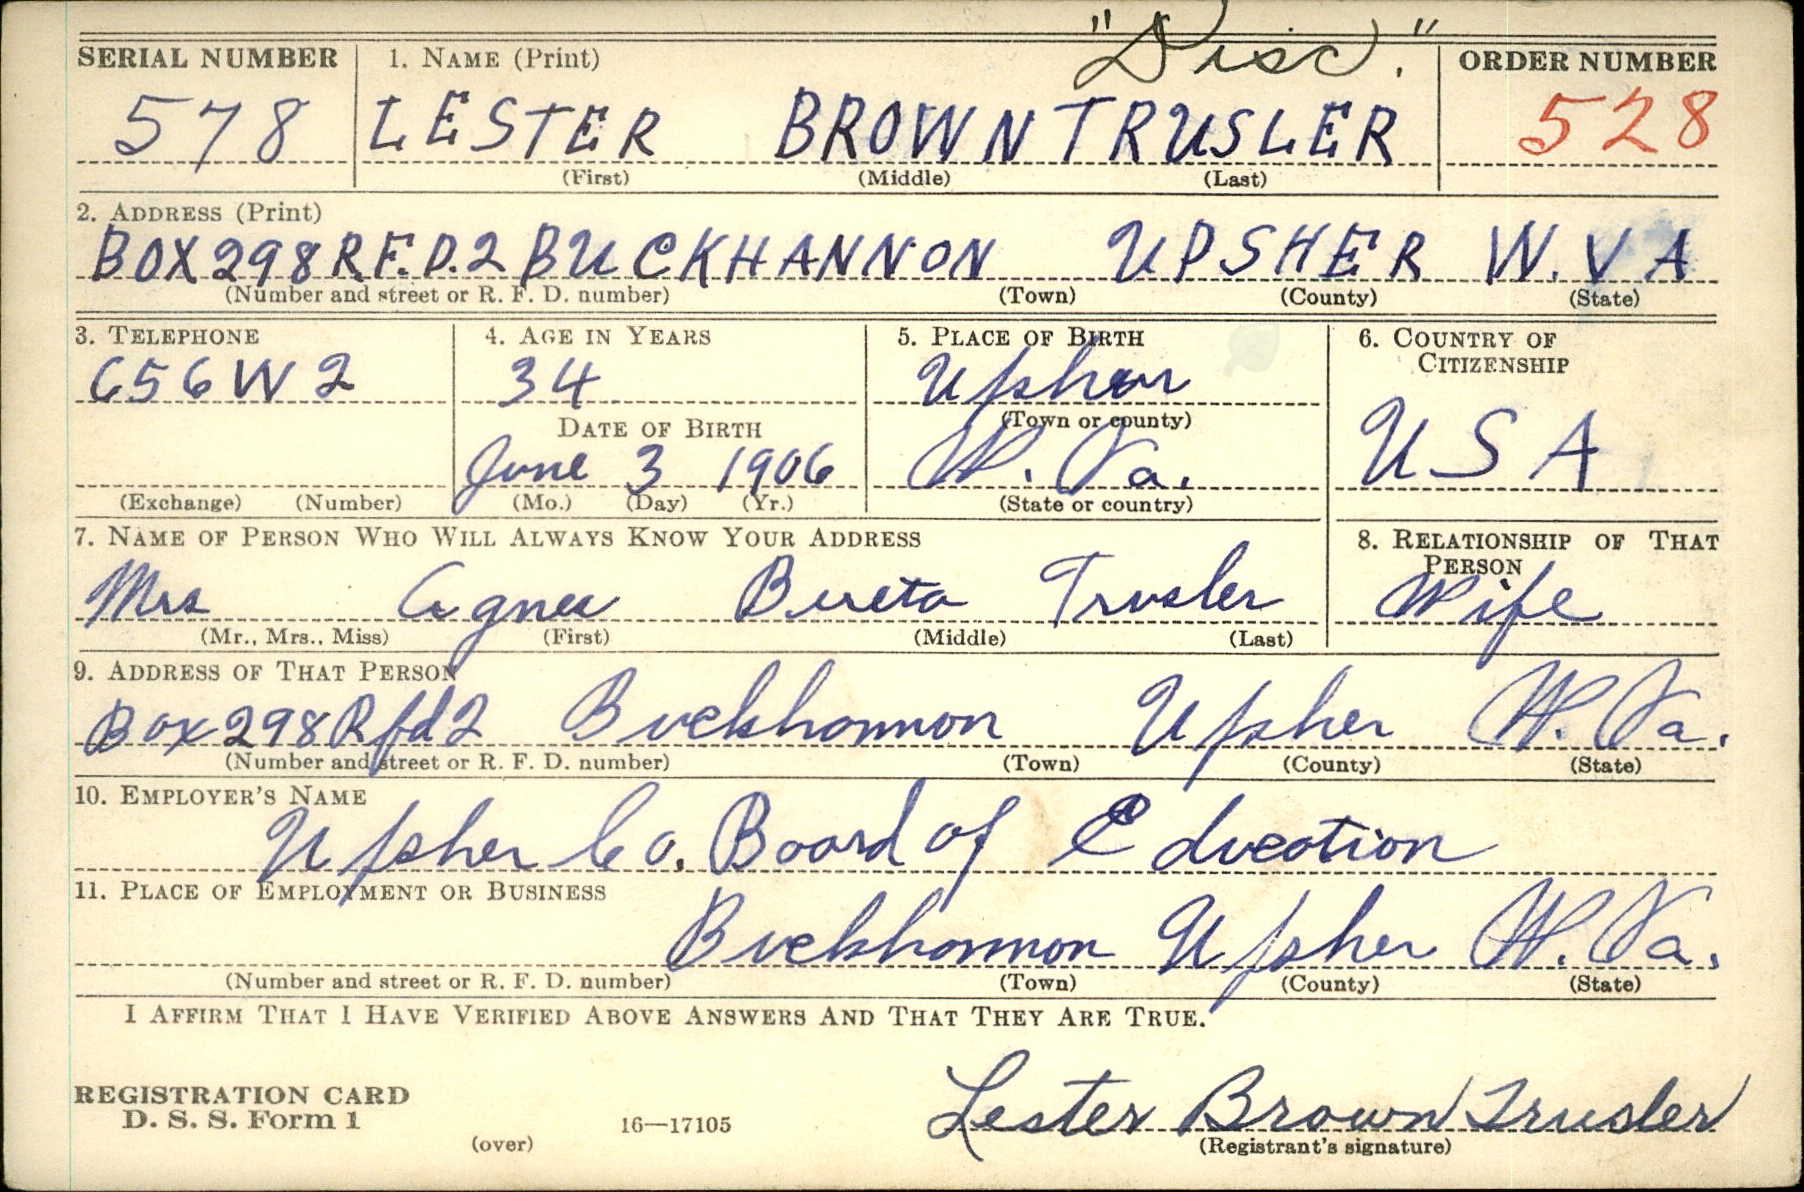 "Disc."
SERIAL NUMBER 1. NAME (Print) ORDER NUMBER
578 LESTER BROWN TRUSLER 528
(First) (Middle) (Last)
2. ADDRESS (Print)
BOX 298 R.F.D. 2 BUCKHANNON UPSHER W. VA
(Number and street or R. F. D. number) (Town) (County) (State)
3. TELEPHONE 4. AGE IN YEARS 5. PLACE OF BIRTH 6. COUNTRY OF
CITIZENSHIP
656 W 2 34 Upshur
DATE OF BIRTH (Town or county)
June 3 1906 W. Va. USA
(Exchange) (Number) (Mo.) (Day) (Yr.) (State or country)
7. NAME OF PERSON WHO WILL ALWAYS KNOW YOUR ADDRESS 8. RELATIONSHIP OF THAT
PERSON
Mrs Agnes Bureta Trusler Wife
(Mr., Mrs., Miss) (First) (Middle) (Last)
9. ADDRESS OF THAT PERSON
Box 298 Rfd 2 Buckhannon Upsher W. Va.
(Number and street or R. F. D. number) (Town) (County) (State)
10. EMPLOYER'S NAME
Upsher Co. Board of Education
11. PLACE OF EMPLOYMENT OR BUSINESS
Buckhannon Upsher W. Va.
(Number and street or R. F. D. number) (Town) (County) (State)
I AFFIRM THAT I HAVE VERIFIED ABOVE ANSWERS AND THAT THEY ARE TRUE.
REGISTRATION CARD
D. S. S. Form 1
(over) 16—17105 Lester Brown Trusler
(Registrant's signature)